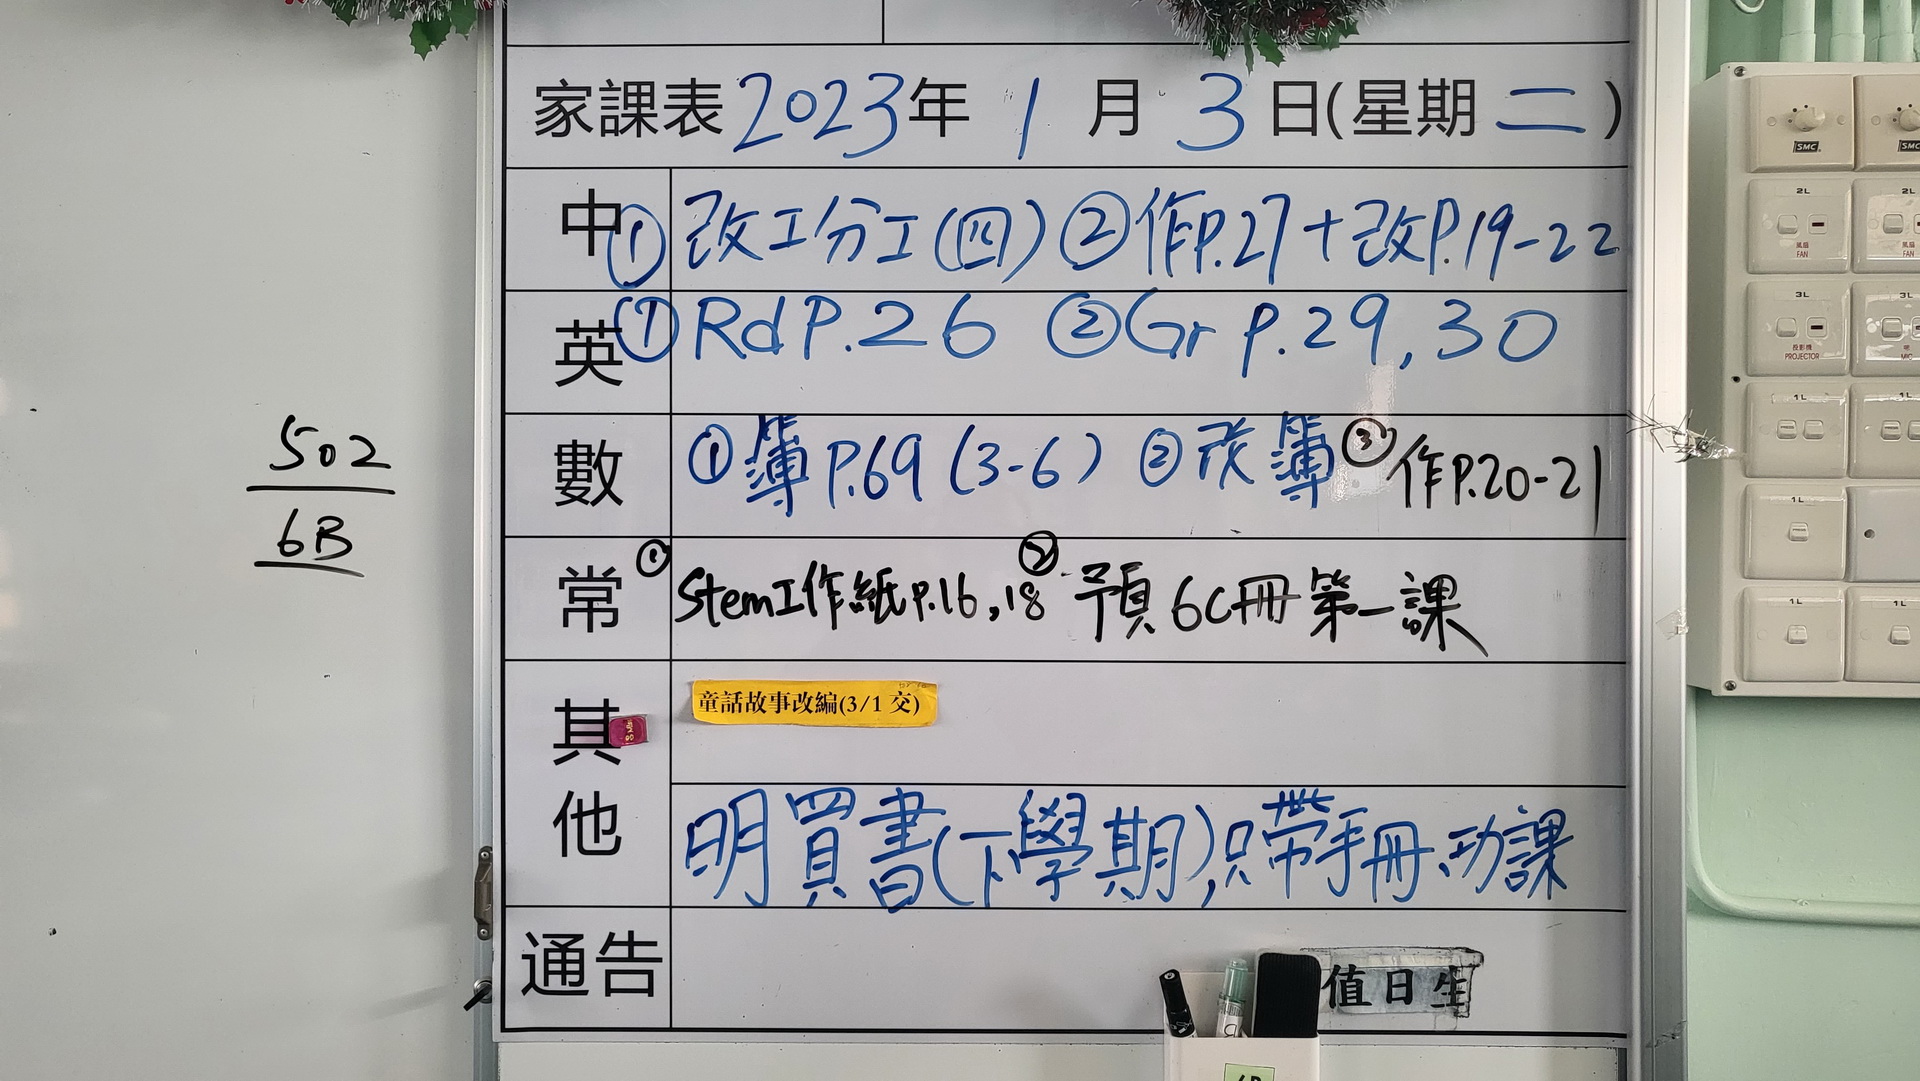 家課表 2023年 1 月 3 日(星期 二 )
中 ① 改工分工(四) ② 作P.27+改P.19-22
英 ① Rd P.26 ② Gr P.29, 30
數 ① 簿 P.69 (3-6) ② 改簿 ③ 作P.20-21
常 ① Stem工作紙 P.16, 18 ② 預 6C冊 第一課
其他
童話故事改編(3/1 交)
明買書(下學期),只帶手冊、功課
通告
值日生
502
6B
SMC
SMC
2L
風扇
FAN
2L
風扇
FAN
3L
投影機
PROJECTOR
3L
MIC
1L
1L
1L
1L
1L